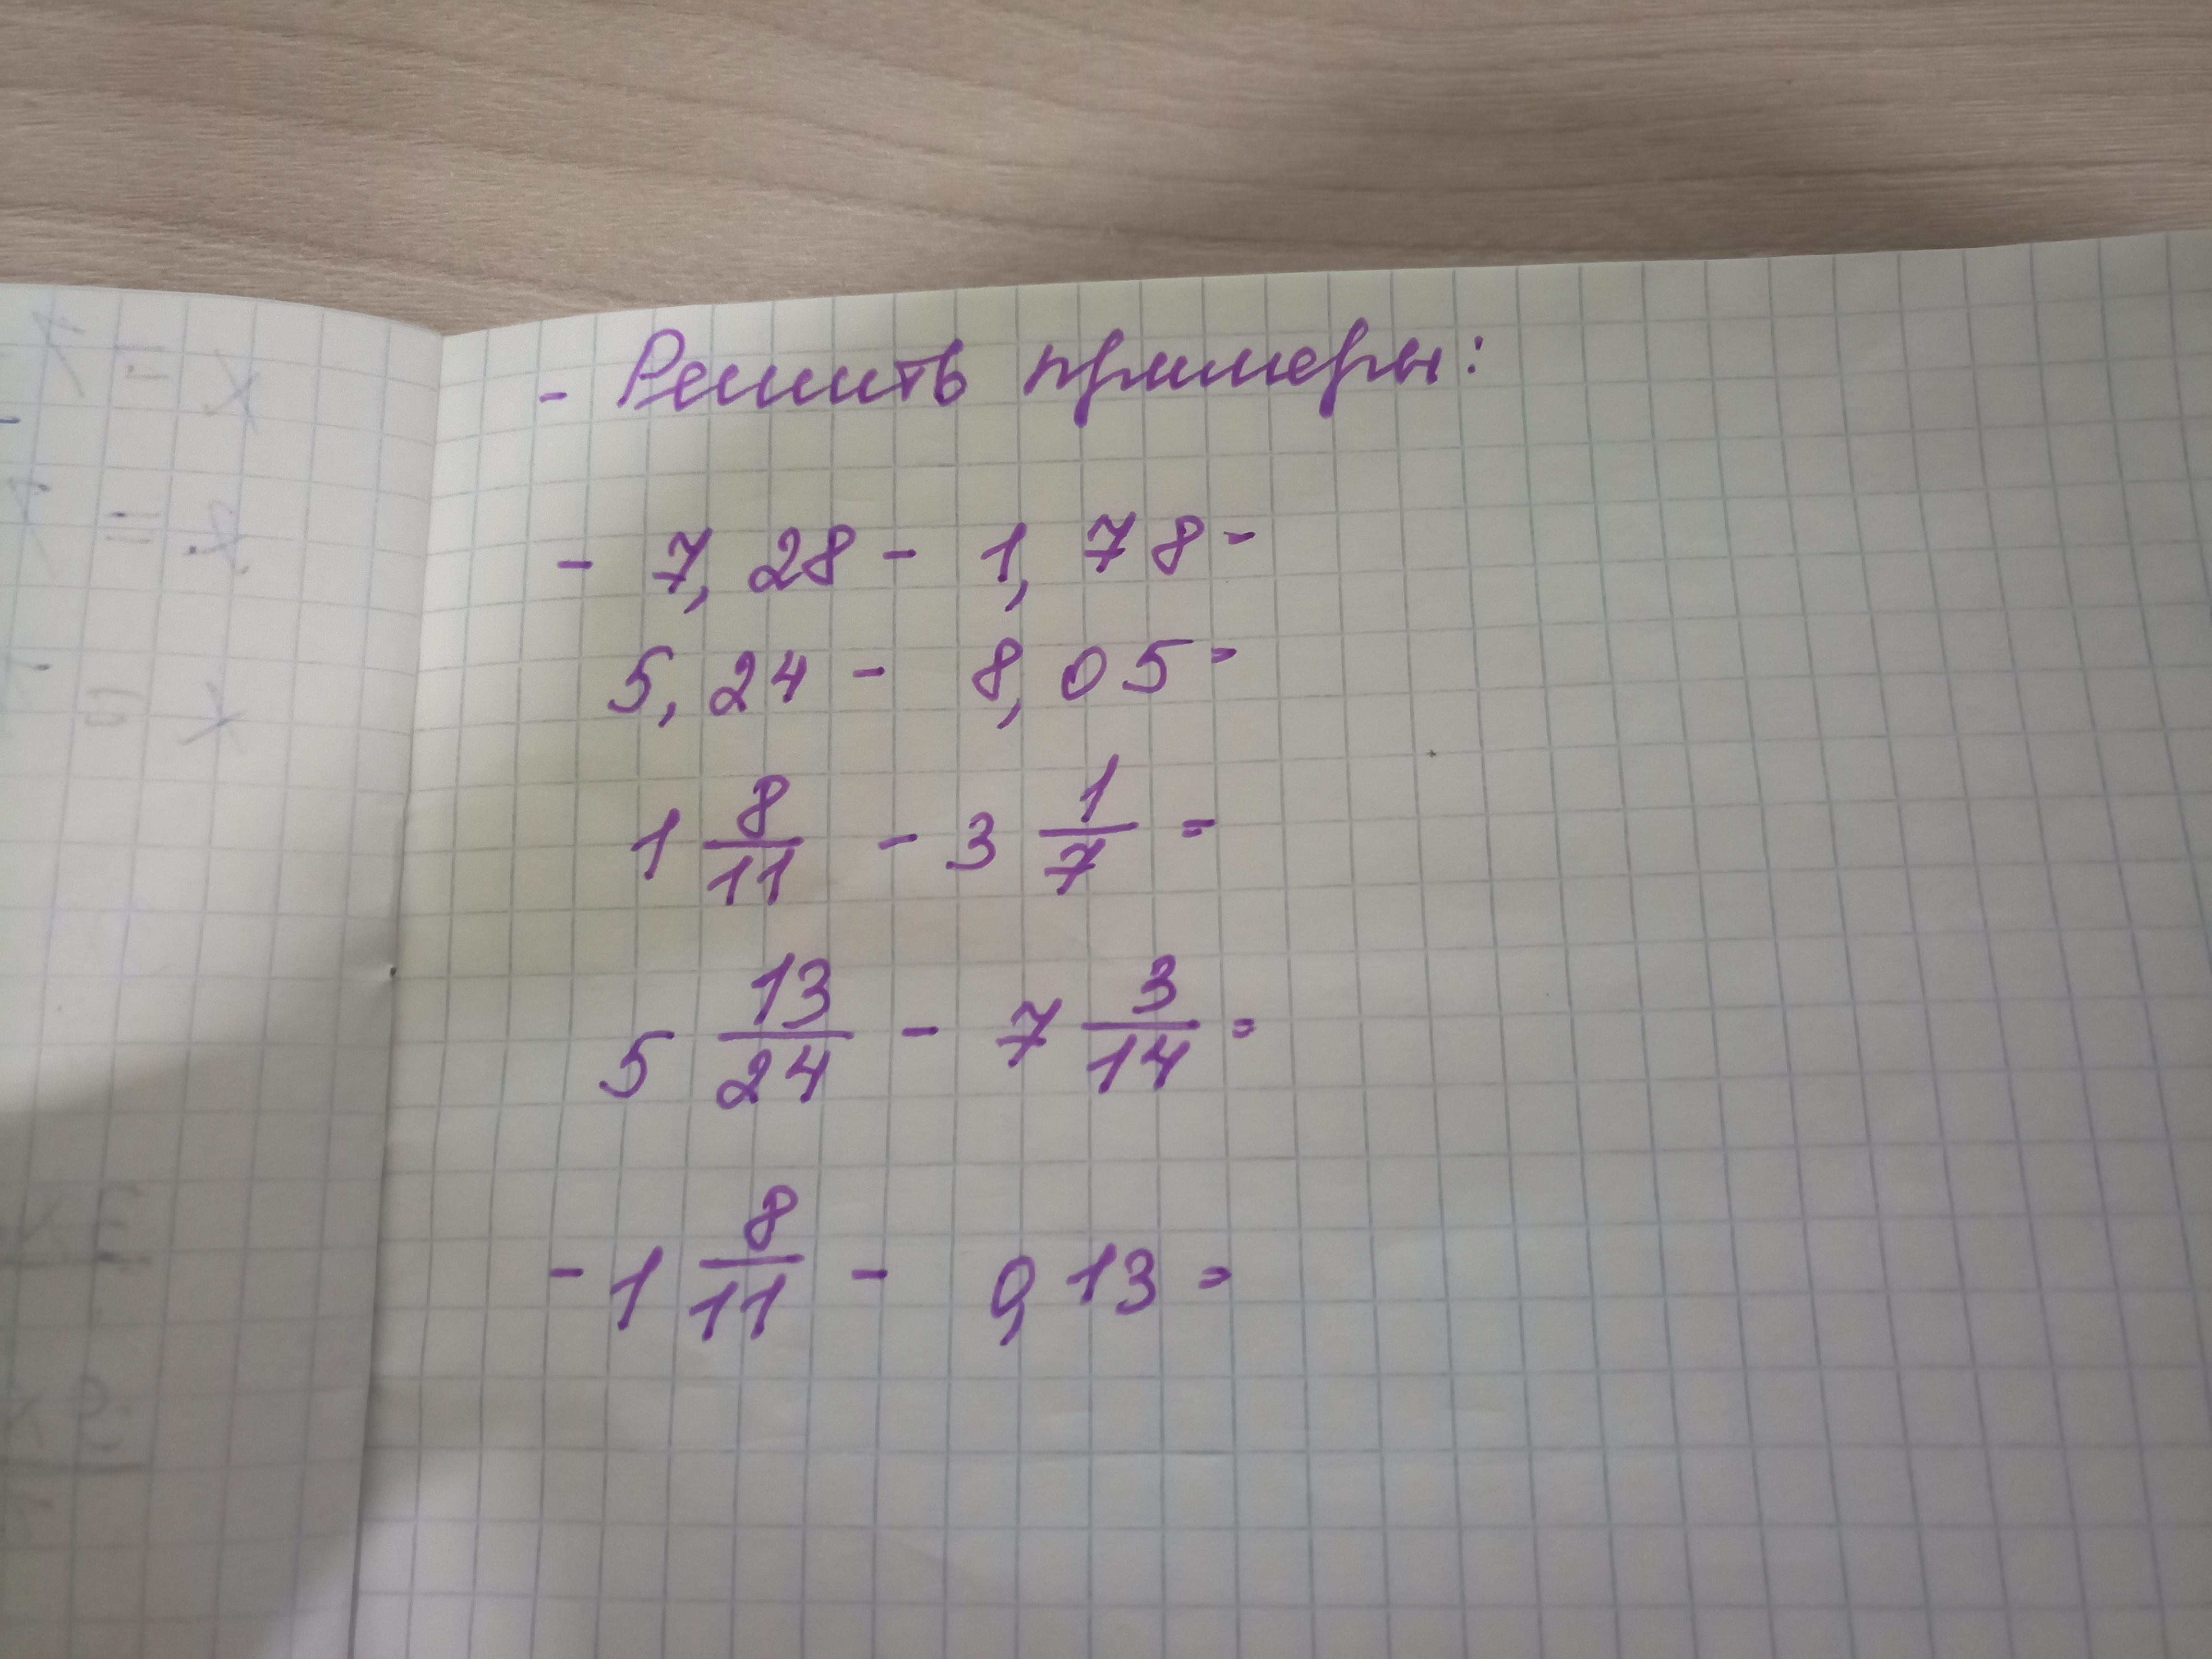 - Решить примеры:
- 7,28 - 1,78 =
5,24 - 8,05 =
1 8/11 - 3 1/7 =
5 13/24 - 7 3/14 =
- 1 8/11 - 0,13 =